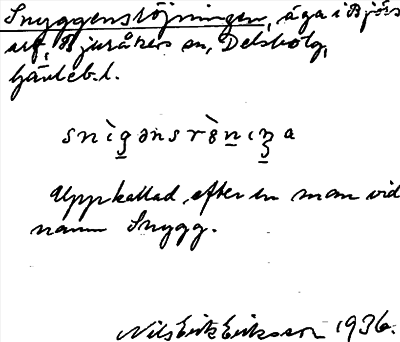 Snyggensröjningen, äga i Björs
arf, Bjuråkers sn, Delsbolg,
Gävleb. l.
Uppkallad efter en man vid
namn Snygg.
Nils Erik Eriksson 1936.